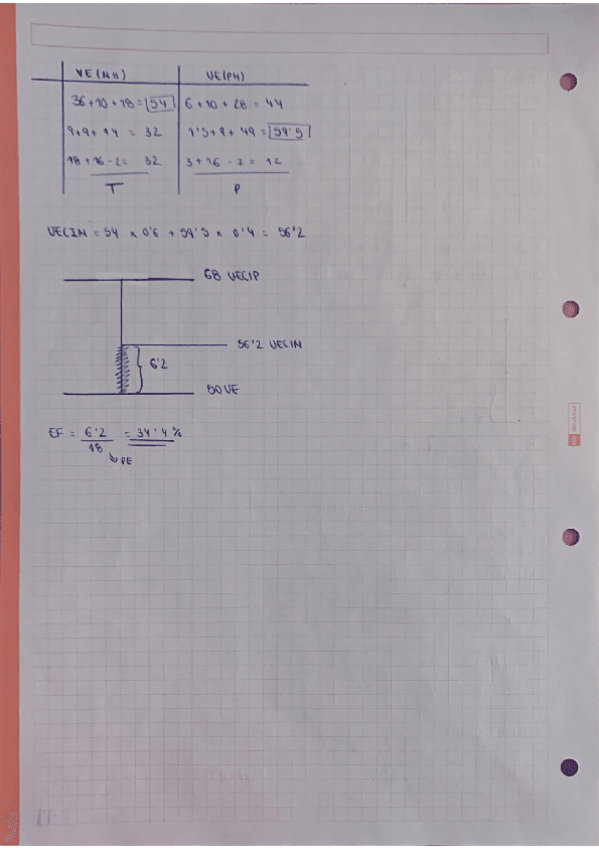 VE(MH) VE(PH)
36+10+18=54 6+10+28=44
9+9+14=32 1'5+9+49=59'5
18+16-2=32 3+16-7=12
T P
VECIN = 54 x 0'6 + 59'5 x 0'4 = 56'2
68 VECIP
56'2 VECIN
6'2
50 VE
EF = 6'2 = 34'4%
18
PE